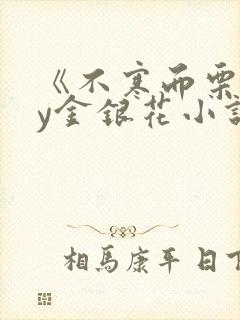 《不寒而栗
y金银花小說
相馬康平日下